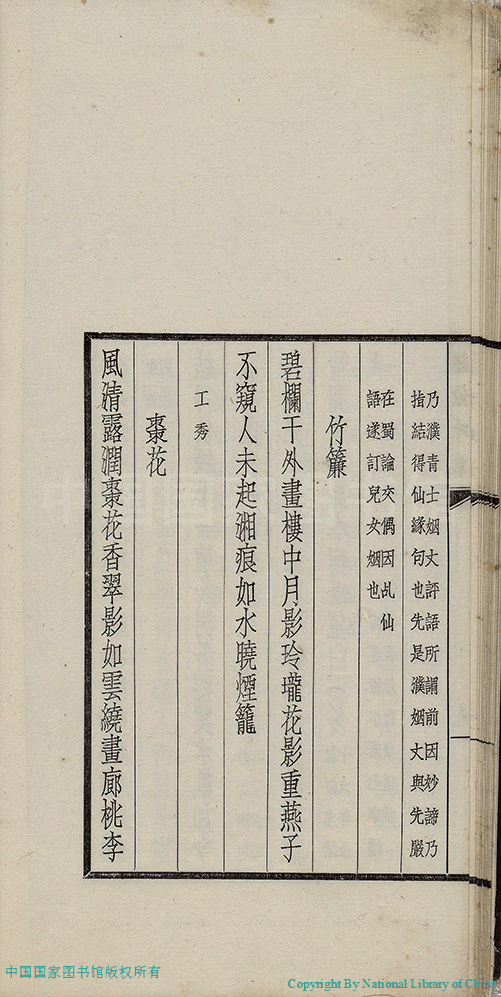 乃濮青士姻丈評語所謂前因妙諦乃
指結得仙緣句也先是濮姻丈與先嚴
在蜀論交偶因乩仙
語遂訂兒女姻也
竹簾
碧欄干外畫樓中月影玲瓏花影重燕子
不窺人未起湘痕如水曉煙籠
工秀
棗花
風清露潤棗花香翠影如雲繞畫廊桃李
中国国家图书馆版权所有
Copyright By National Library of China